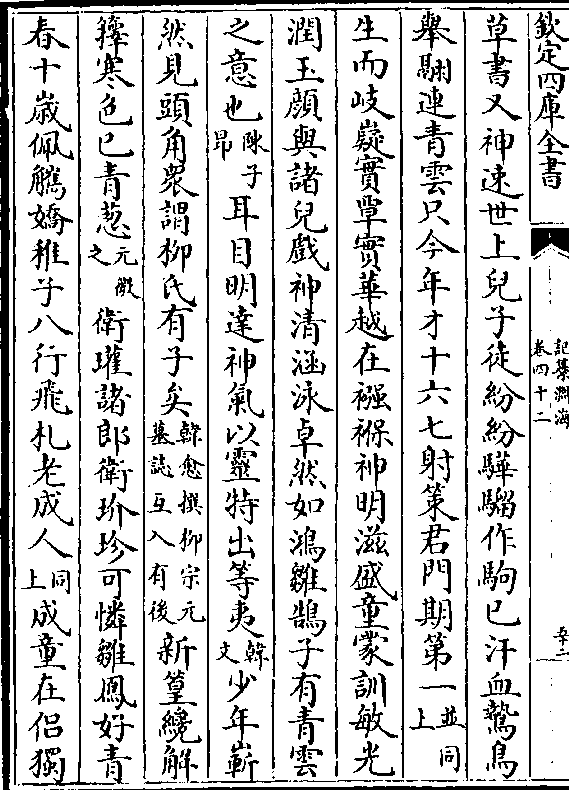 欽定四庫全書
記纂淵海
卷四十二
草書又神速世上兒子徒紛紛驊騮作駒已汗血鷙鳥
舉翮連青雲只今年才十六七射策君門期第一並同上
生而岐嶷實覃實華越在襁褓神明滋盛童蒙訓敏光
潤玉顔與諸兒戲神清涵泳卓然如鴻雛鵠子有青雲
之意也陳子昂耳目明達神氣以靈特出等夷韓文少年嶄
然見頭角衆謂柳氏有子矣韓愈撰柳宗元墓誌互入有後新篁纔解
籜寒色已青葱元微之衛瓘諸郎衛玠珍可憐雛鳳好青
春十歲佩觿嬌稚子八行飛札老成人同上成童在侣獨